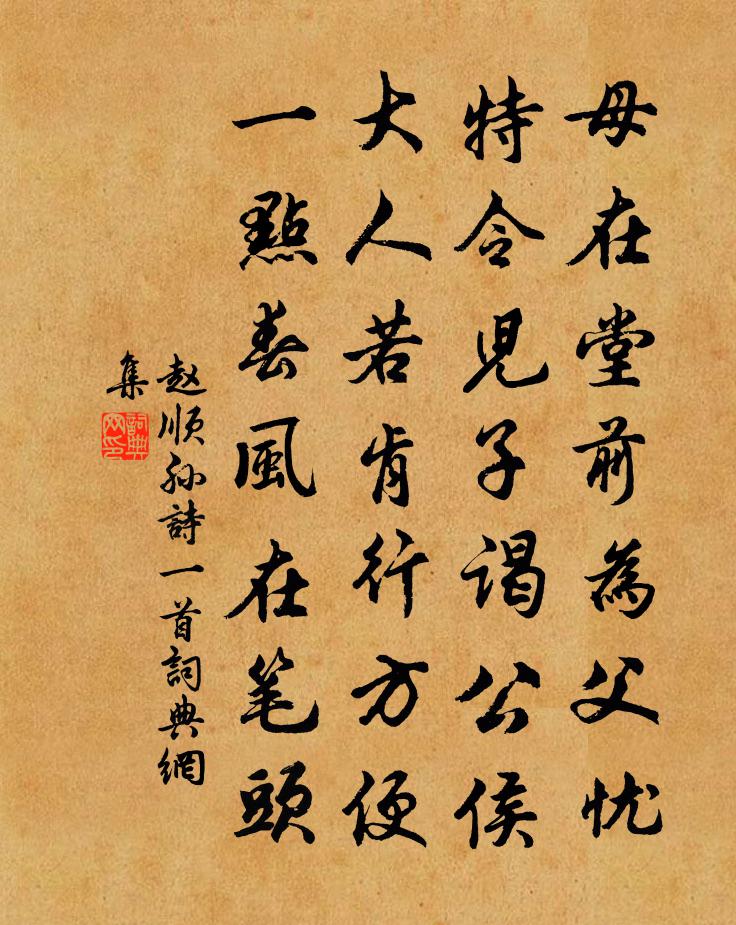 母在堂前為父忧
特令児子谒公侯
大人若肯行方便
一點春風在笔頭
赵顺孙詩一首詞典網
集
詞典
网印